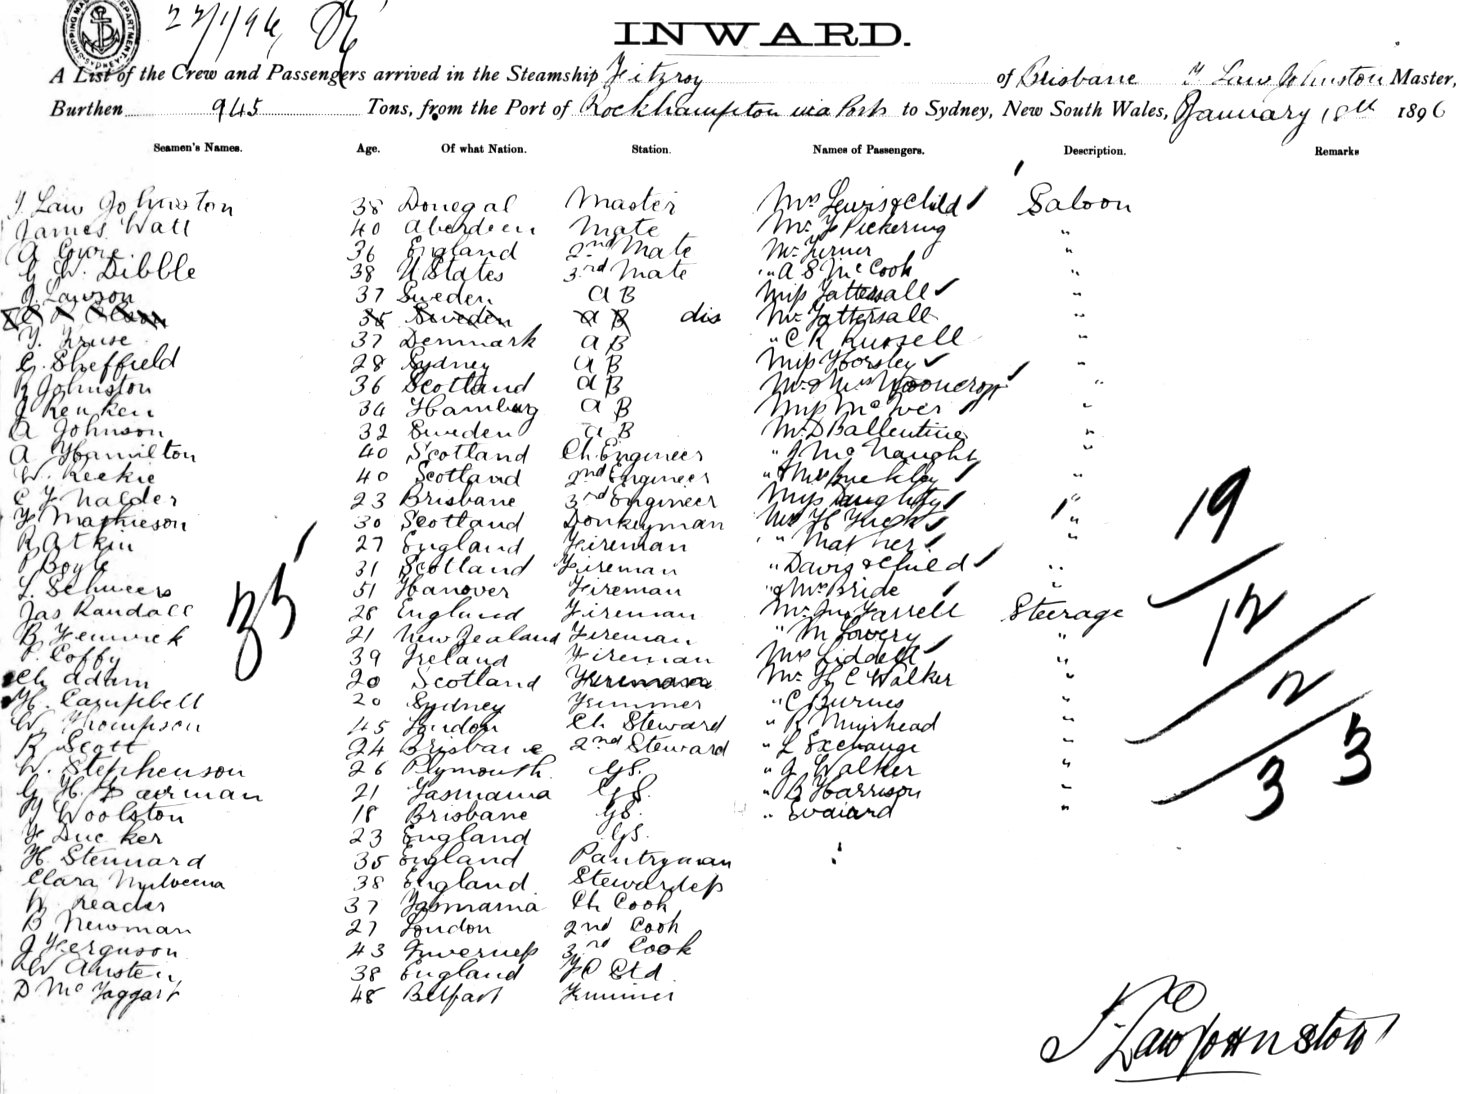 SHIPPING MA DEPARTMENT SYDNEY
22/1/96
INWARD.
A List of the Crew and Passengers arrived in the Steamship Fitzroy of Brisbane T Law Johnston Master,
Burthen 945 Tons, from the Port of Rockhampton via Ports to Sydney, New South Wales, January 18th 1896
Seamen's Names. Age. Of what Nation. Station. Names of Passengers. Description. Remarks
T Law Johnston 38 Donegal Master Mrs Lewis & Child Saloon
James Watt 40 Aberdeen Mate Mr F Pickering "
A 36 England 2nd Mate Mr Turner "
G W. Dibble 38 U States 3rd Mate " A S McCook "
J. Lawson 37 Sweden AB Miss Tattersall "
35 Sweden AB dis Mr Tattersall "
T. Kruse 37 Denmark AB " C R Russell "
G. Sheffield 28 Sydney AB Miss Horsley "
R Johnston 36 Scotland AB Mr & Mrs "
J Renken 34 Hamburg AB Miss McIver "
A Johnson 32 Sweden AB Mr D Ballentine "
A Hamilton 40 Scotland Ch. Engineer " J McNaught "
W. Reekie 40 Scotland 2nd Engineer " Mrs Buckley "
C F Nalder 23 Brisbane 3rd Engineer Miss "
Mathieson 30 Scotland Donkeyman Mrs H "
R Atkin 27 England Fireman " Mather "
P Boyle 31 Scotland Fireman " Davis & Child "
L. Schweers 51 Hanover Fireman " McBride "
Jas Randall 28 England Fireman Mr Jno Farrell Steerage
B Fenwick 21 New Zealand Fireman " M Lowery "
P. Coffy 39 Ireland Fireman Mrs Liddell "
Ch Adam 20 Scotland Fireman Mr H C Walker "
H. Campbell 20 Sydney Trimmer " C Burnes "
W Thompson 45 London Ch Steward " R Muirhead "
R Scott 24 Brisbane 2nd Steward " L Exchange "
W. Stephenson 26 Plymouth GS. " J Walker "
G H. Fairman 21 Tasmania GS. " B Harrison "
Woolston 18 Brisbane GS. " "
F Ducker 23 England GS.
H. Stennard 35 England Pantryman
Clara 38 England Stewardess
W Reader 37 Tasmania Ch Cook
B Newman 27 London 2nd Cook
J Ferguson 43 Inverness 3rd Cook
W Austen 38 England FC Std
D McTaggart 48 Belfast Trimmer
35
19
12
2
33
T Law Johnston